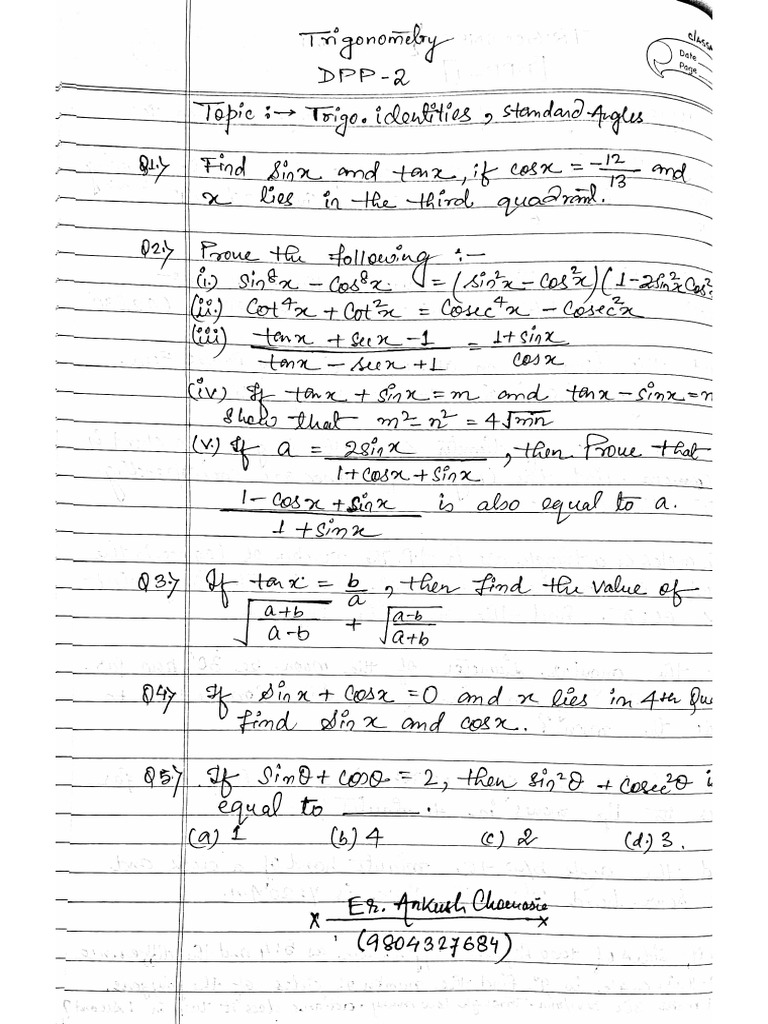 Trigonometry
DPP-2
CLASS
Date
Page
Topic :→ Trigo. identities, standard Angles
Q1:) Find sinx and tanx, if cosx = -12/13 and
x lies in the third quadrant.
Q2:) Prove the following :-
(i.) sin⁸x - cos⁸x = (sin²x - cos²x)(1-2sin²x cos²
(ii.) cot⁴x + cot²x = cosec⁴x - cosec²x
(iii) (tanx + secx - 1)/(tanx - secx + 1) = (1+sinx)/cosx
(iv) If tanx + sinx = m and tanx - sinx = n
show that m² - n² = 4√mn
(v.) If a = 2sinx/(1+cosx+sinx), then Prove that
(1-cosx+sinx)/(1+sinx) is also equal to a.
Q3:) If tanx = b/a, then find the value of
√((a+b)/(a-b)) + √((a-b)/(a+b))
Q4:) If sinx + cosx = 0 and x lies in 4th Qu
find sinx and cosx.
Q5:) If sinθ + cosθ = 2, then sin²θ + cosec²θ i
equal to ______.
(a) 1 (b) 4 (c) 2 (d.) 3.
Er. Ankush
(9804327684)